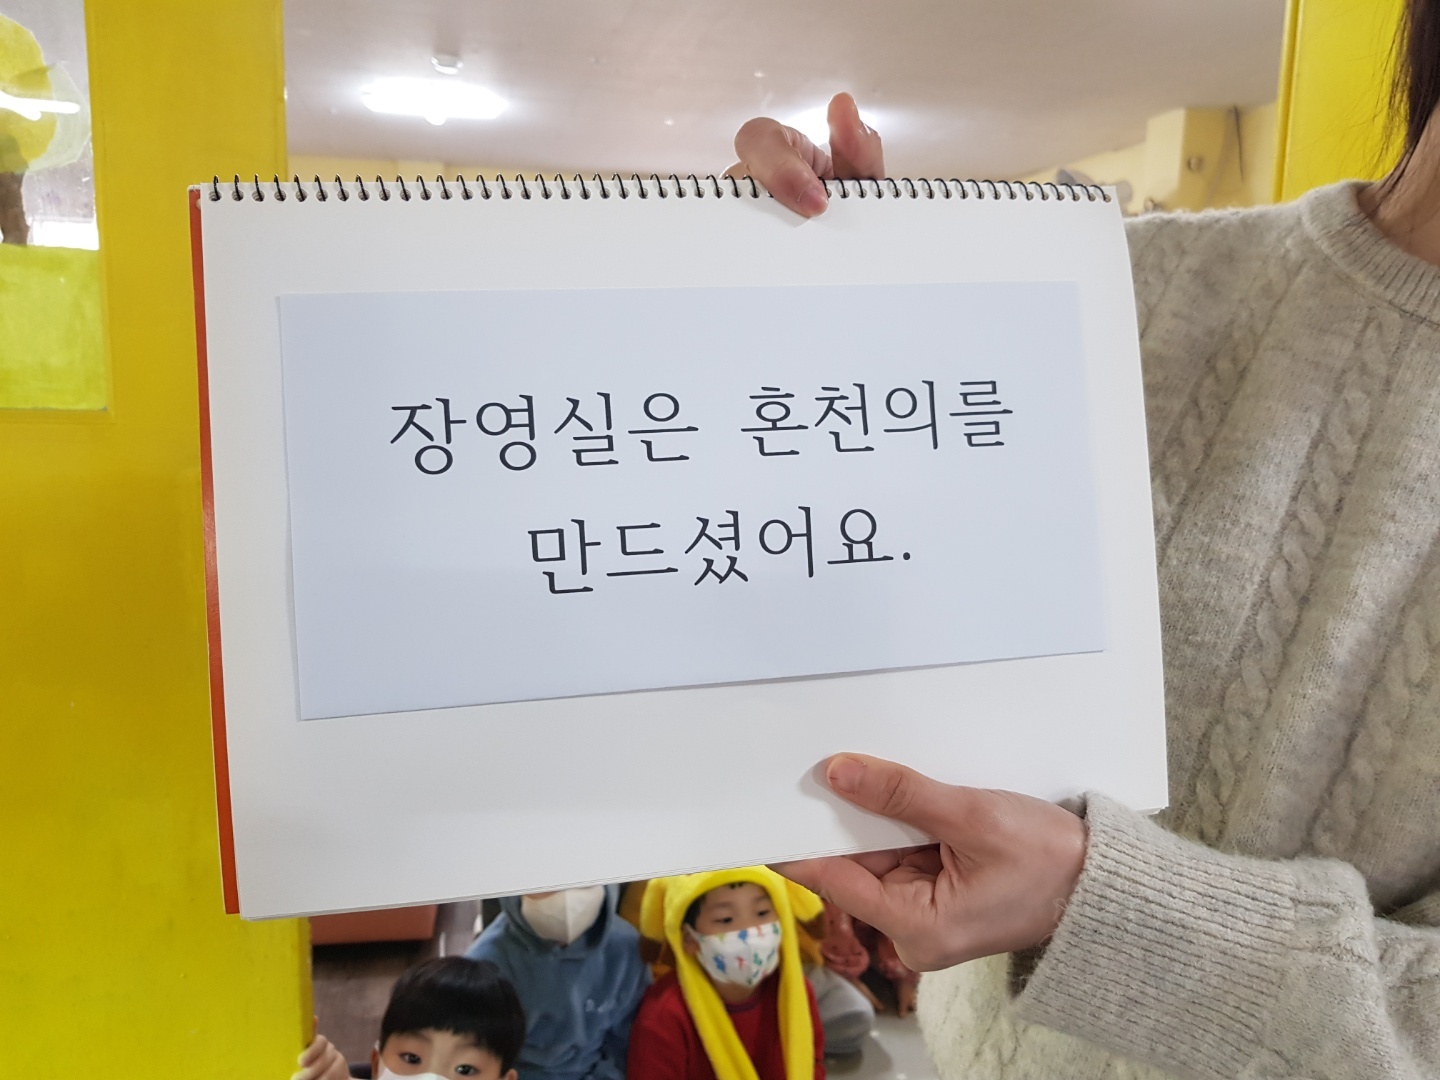 장영실은 혼천의를
만드셨어요.